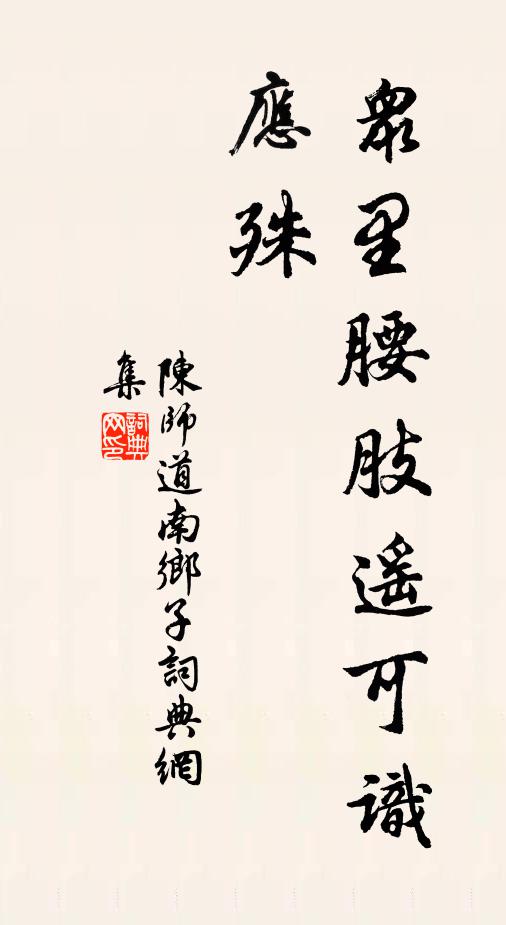 眾里腰肢遥可識
應殊
陳師道南鄉子詞典網
集
詞典
网印